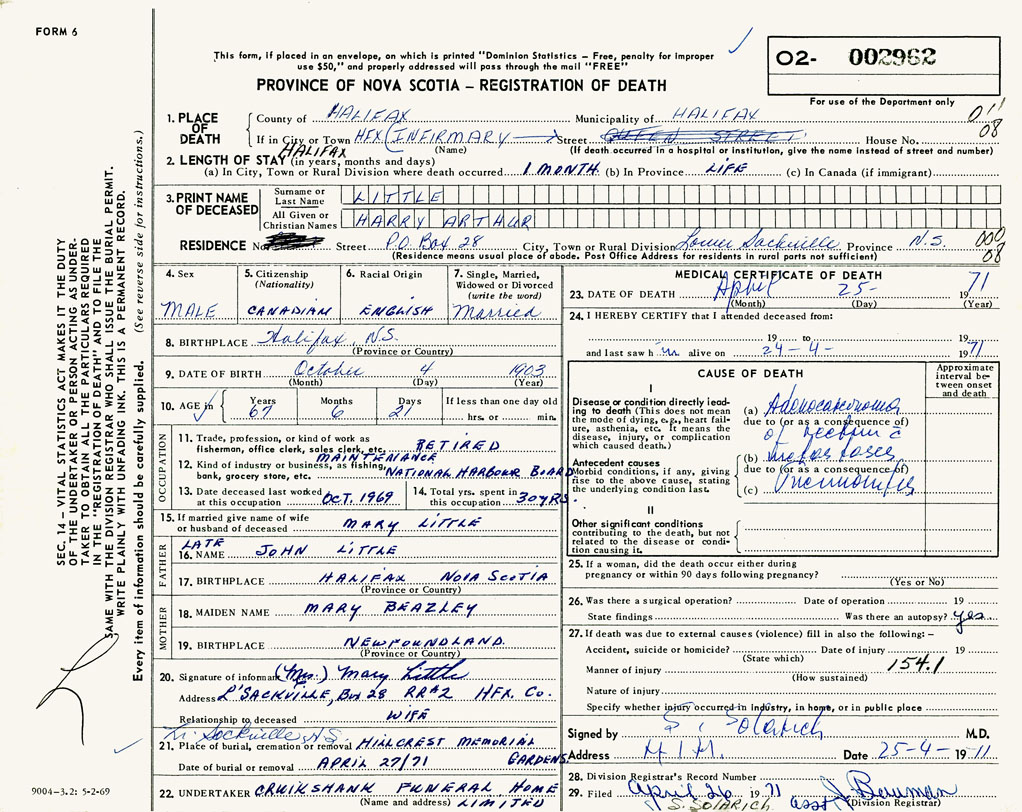 FORM 6
This form, if placed in an envelope, on which is printed "Dominion Statistics – Free, penalty for improper
use $50," and properly addressed will pass through the mail "FREE"
02- 002962
For use of the Department only
PROVINCE OF NOVA SCOTIA – REGISTRATION OF DEATH
1. PLACE OF DEATH
County of HALIFAX Municipality of HALIFAX
If in City or Town HFX INFIRMARY Street QUEEN STREET House No. 08
HALIFAX (Name) (If death occurred in a hospital or institution, give the name instead of street and number)
2. LENGTH OF STAY (in years, months and days)
(a) In City, Town or Rural Division where death occurred 1 MONTH (b) In Province LIFE (c) In Canada (if immigrant)
3. PRINT NAME OF DECEASED
Surname or Last Name LITTLE
All Given or Christian Names HARRY ARTHUR
RESIDENCE No. Street P.O. Box 28 City, Town or Rural Division Lower Sackville Province N.S. 08
(Residence means usual place of abode. Post Office Address for residents in rural parts not sufficient)
4. Sex MALE
5. Citizenship (Nationality) CANADIAN
6. Racial Origin ENGLISH
7. Single, Married, Widowed or Divorced (write the word) Married
8. BIRTHPLACE Halifax, N.S.
(Province or Country)
9. DATE OF BIRTH October 4 1903
(Month) (Day) (Year)
10. AGE in Years 67 Months 6 Days 21 If less than one day old hrs. or min.
OCCUPATION
11. Trade, profession, or kind of work as
fisherman, office clerk, sales clerk, etc. RETIRED
MAINTENANCE
12. Kind of industry or business, as fishing,
bank, grocery store, etc. NATIONAL HARBOUR BOARD
13. Date deceased last worked at this occupation OCT. 1969
14. Total yrs. spent in this occupation 30 YRS.
15. If married give name of wife
or husband of deceased MARY LITTLE
FATHER
LATE
16. NAME JOHN LITTLE
17. BIRTHPLACE HALIFAX NOVA SCOTIA
(Province or Country)
MOTHER
18. MAIDEN NAME MARY BEAZLEY
19. BIRTHPLACE NEWFOUNDLAND
(Province or Country)
20. Signature of informant (Mrs.) Mary Little
Address L'SACKVILLE, Box 28 RR#2 HFX. Co.
Relationship to deceased WIFE
Sackville, N.S.
21. Place of burial, cremation or removal HILLCREST MEMORIAL
GARDENS
Date of burial or removal APRIL 27/71
22. UNDERTAKER CRUIKSHANK FUNERAL HOME
(Name and address) LIMITED
MEDICAL CERTIFICATE OF DEATH
23. DATE OF DEATH April 25- 1971
(Month) (Day) (Year)
24. I HEREBY CERTIFY that I attended deceased from:
19 to 19
and last saw h im alive on 24-4- 1971
CAUSE OF DEATH
Approximate interval between onset and death
I
Disease or condition directly leading to death (This does not mean the mode of dying, e.g., heart failure, asthenia, etc. It means the disease, injury, or complication which caused death.)
(a) Adenocarcinoma
due to (or as a consequence of)
of rectum c
Antecedent causes
Morbid conditions, if any, giving rise to the above cause, stating the underlying condition last.
(b) metastases
due to (or as a consequence of)
(c) Pneumonitis
II
Other significant conditions
contributing to the death, but not related to the disease or condition causing it.
25. If a woman, did the death occur either during
pregnancy or within 90 days following pregnancy?
(Yes or No)
26. Was there a surgical operation? Date of operation 19
State findings Was there an autopsy? yes
27. If death was due to external causes (violence) fill in also the following:–
Accident, suicide or homicide? Date of injury 19
(State which)
Manner of injury 154.1
(How sustained)
Nature of injury
Specify whether injury occurred in industry, in home, or in public place
Signed by S. Solarich M.D.
Address H.I.H. Date 25-4-1971
28. Division Registrar's Record Number
29. Filed April 26 1971 asst J. Bowman
S. SOLARICH Division Registrar
SEC. 14 – VITAL STATISTICS ACT MAKES IT THE DUTY
OF THE UNDERTAKER OR PERSON ACTING AS UNDER-
TAKER TO OBTAIN ALL THE PARTICULARS REQUIRED
IN THE "REGISTRATION OF DEATH" AND TO FILE THE
SAME WITH THE DIVISION REGISTRAR WHO SHALL ISSUE THE BURIAL PERMIT.
WRITE PLAINLY WITH UNFADING INK. THIS IS A PERMANENT RECORD.
Every item of information should be carefully supplied. (See reverse side for instructions.)
9004–3.2: 5-2-69